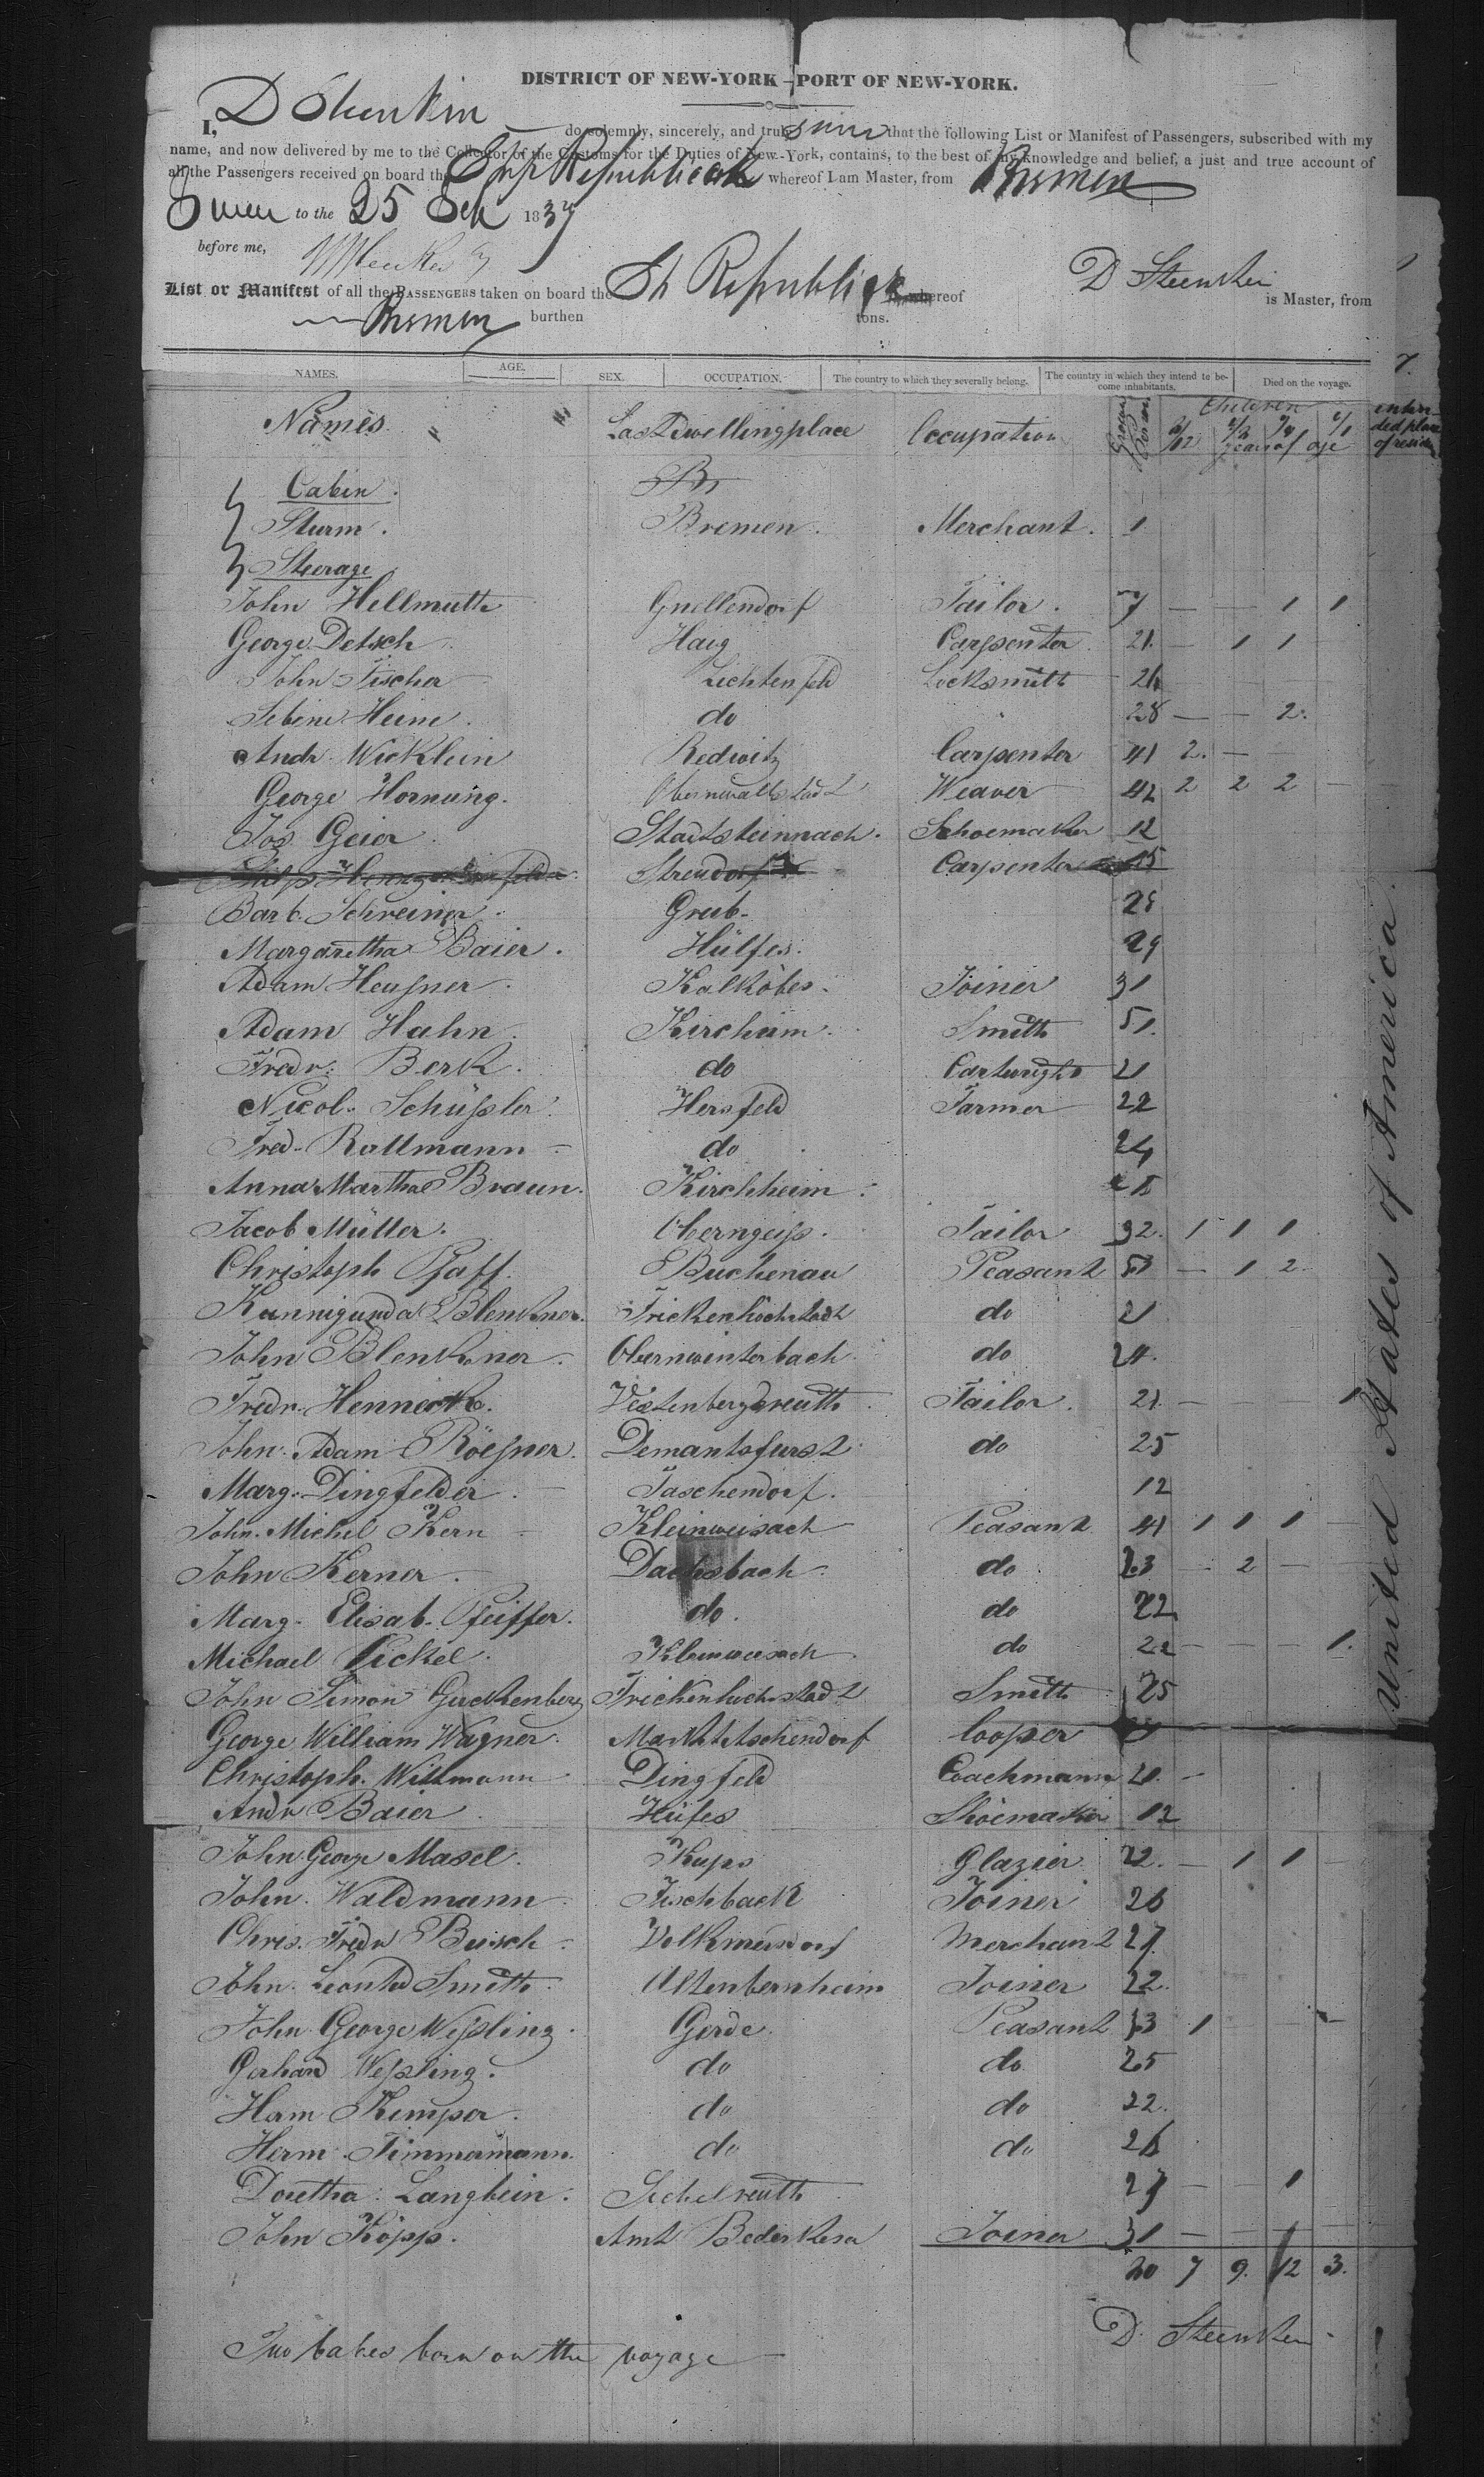 DISTRICT OF NEW-YORK - PORT OF NEW-YORK.
I, D Steenken do solemnly, sincerely, and truly swear that the following List or Manifest of Passengers, subscribed with my
name, and now delivered by me to the Collector of the Customs for the Duties of New-York, contains, to the best of my knowledge and belief, a just and true account of
all the Passengers received on board the Ship Republick whereof I am Master, from Bremen
Sworn to the 25 1837
before me,
List or Manifest of all the PASSENGERS taken on board the Sh Republick whereof D Steenken is Master, from
Bremen burthen tons.
NAMES. AGE. SEX. OCCUPATION. The country to which they severally belong. The country in which they intend to become inhabitants. Died on the voyage.
Names Last dwellingplace Occupation Grown Persons Children years of age inten-ded place of residen
Cabin.
Sturm. Bremen. Merchant. 1
Steerage
John Hellmuth Gnellendorf Tailor. — — 1 1
George Detsch Haig Carpenter 21. — 1 1
John Fischer Lichtenfeld Locksmith
Sebine Heine. do 28 — — 2.
Andr. Wicklein Redwitz Carpenter 41 2. —
George Hornung. Weaver 42 2 2 2 —
Jos. Geier Stadtsteinnach. Schoemaker 12
Carpenter
Barb. Schreiner. Greub.
Margaretha Baier. Hülfes. 29
Adam Heusner. Kalkobes. Joiner 31
Adam Hahn. Kircheim. Smith 51.
Fredr. Berk. do Cartwright 21
Nicol. Schüssler. Hersfeld Farmer 22
Fred. Rollmann — do 24
Anna Martha Braun. Kirchheim.
Jacob Müller. Oberngeiss. Tailor 32. 1 1 1
Christoph Pfaff. Buchenau Peasant — 1 2.
Kunnigunda Blenkner. Frickenhöchstadt do 21
John Blenkner. Obernwinterbach do 24.
Fredr. Henneck. Vestenbergsreuth Tailor. 21. — — — 1
John Adam Röesner. Demantsfurst do 25
Marg. Dingfelder. Taschendorf. 12
John Michel Kern — Kleinweisach Peasant 41 1 1 1 —
John Kerner. Dachsbach. do 23 — 2 —
Marg. Elisab. Pfeiffer. do. do 22
Michael Pickel. Kleinweisach. do 22 — — — 1.
John Simon Guckenberg Frickenhöchstadt Smith 25
George William Wagner. Markttaschendorf Cooper
Christoph. Wittmann Dingfeld Coachmann 20. —
Andr Baier Hüfes Shoemaker 12
John George Masel. Kups Glazier 22. — 1 1 —
John Waldmann Fischback Joiner
Chris. Fredr Busch. Volkmersdorf Merchant 27.
John Leonhd Smith. Altenbernheim Joiner 22.
John George Wessling. Gerde. Peasant 33 1 — — —
Gerhard Wessling. do do 25
Herm Kemper. do do 22.
Herm. Timmermann. do do
Doretha Langbein. Sichelreuth 27 — — 1
John Köpp. Amt Bederkesa Joiner 31 — — — —
7 9. 12 3.
United States of America.
D. Steenken
Two babes born on the voyage